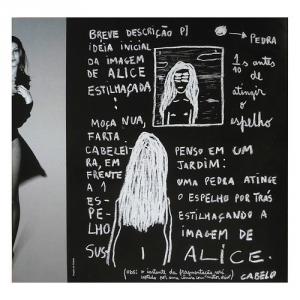 BREVE DESCRIÇÃO P/
IDÉIA INICIAL
DA IMAGEM
DE ALICE
ESTILHAÇADA
:
PEDRA
1/10 s antes
de
atingir
o
espelho
MOÇA NUA,
FARTA
CABELEI
RA, EM
FRENTE
A 1
ES-
PE-
LHO
SUS
PENSO EM UM
JARDIM:
UMA PEDRA ATINGE
O ESPELHO POR TRÁS
ESTILHAÇANDO A
IMAGEM DE
ALICE.
(OBS: o instante da fragmentação será
CABELO